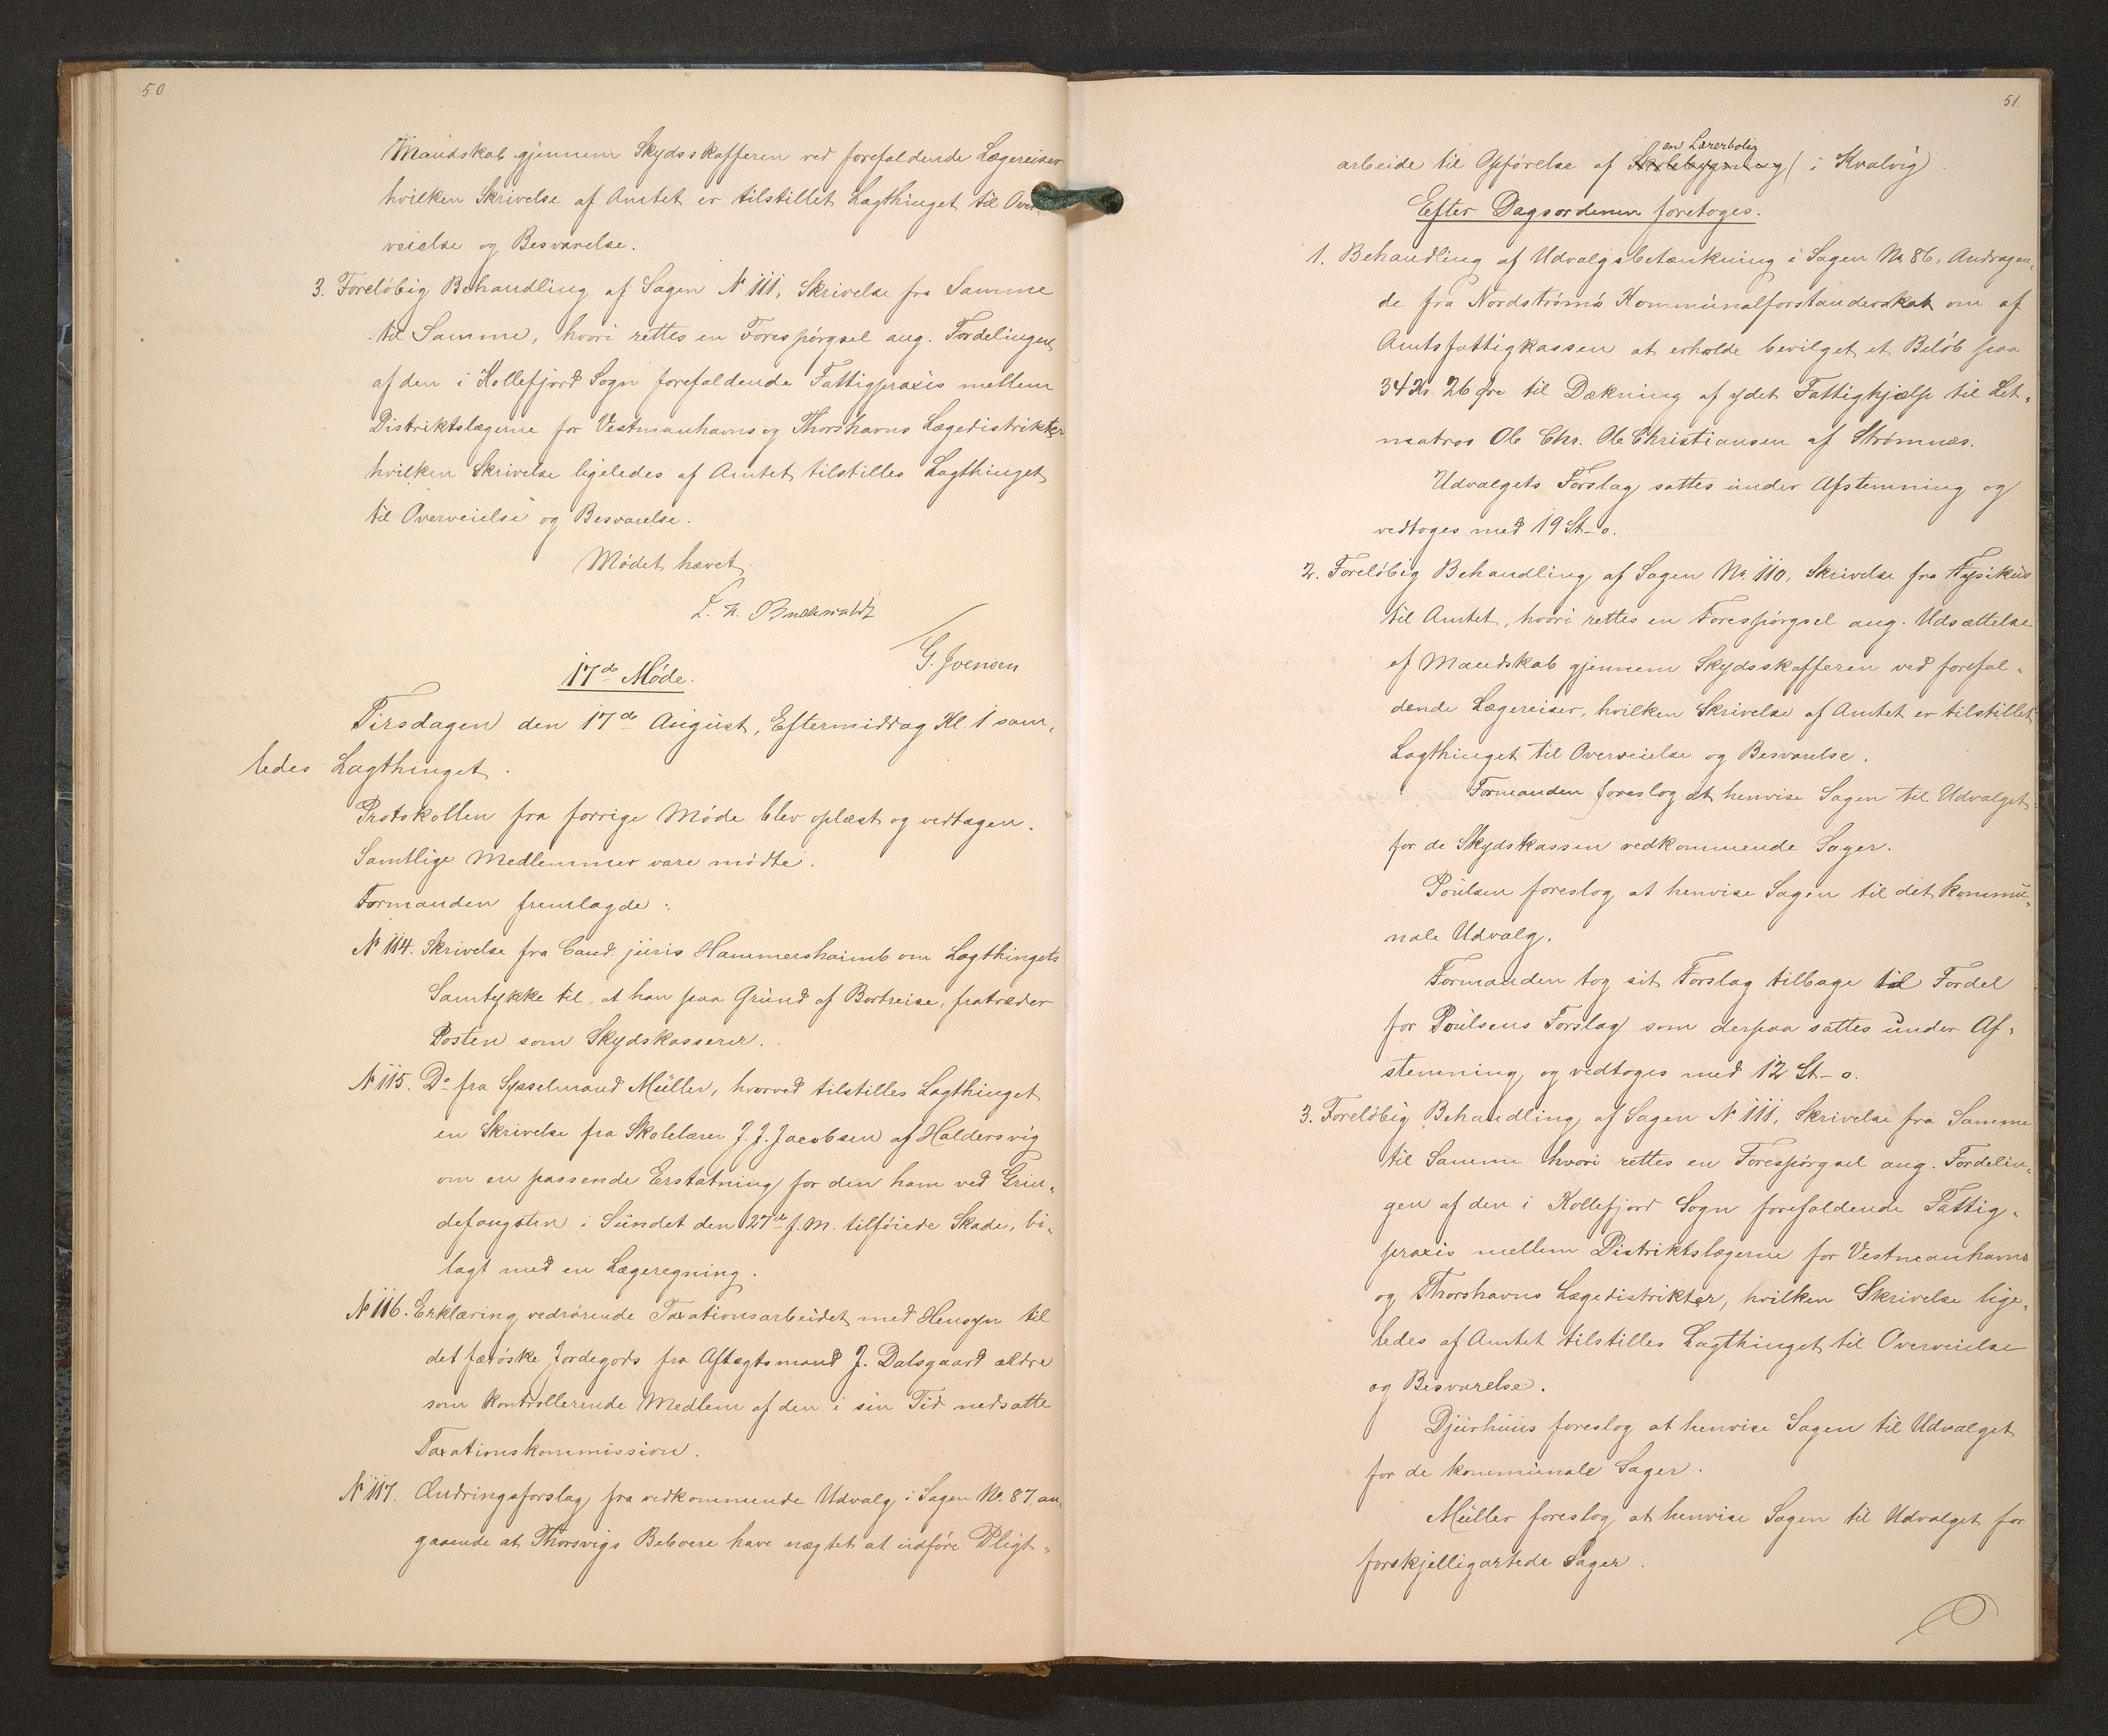 50
Mandskab gjennem Skydsskafferen ved forefaldende Lægereiser
hvilken Skrivelse af Amtet er tilstillet Lagthinget til Over-
veielse og Besvarelse.
3. Foreløbig Behandling af Sagen № 111, Skrivelse fra Samme
til Samme, hvori rettes en Forespørgsel ang. Fordelingen
af den i Kollefjord Sogn forefaldende Fattigpraxis mellem
Distriktslægerne for Vestmanhavns og Thorshavns Lægedistrikter
hvilken Skrivelse ligeledes af Amtet tilstilles Lagthinget
til Overveielse og Besvarelse.
Mødet hævet.
L. N. Buchwaldt
G. Joensen
17de Møde.
Tirsdagen den 17de August, Eftermiddag Kl. 1 sam-
ledes Lagthinget.
Protokollen fra forrige Møde blev oplæst og vedtagen.
Samtlige Medlemmer vare mødte.
Formanden fremlagde:
№ 114. Skrivelse fra Cand. juris Hammershaimb om Lagthingets
Samtykke til, at han paa Grund af Bortreise, fratræder
Posten som Skydskasserer.
№ 115. Do fra Sysselmand Müller, hvorved tilstilles Lagthinget
en Skrivelse fra Skolelærer J. J. Jacobsen af Haldersvig
om en passende Erstatning for den ham ved Grin-
defangsten i Sundet den 27de f. M. tilføiede Skade, bi-
lagt med en Lægeregning.
№ 116. Erklæring vedrørende Taxationsarbeidet med Hensyn til
det færøske Jordegods fra Aftægtsmand J. Dalsgaard ældre
som kontrollerende Medlem af den i sin Tid nedsatte
Taxationskommission.
№ 117. Ændringsforslag fra vedkommende Udvalg i Sagen Nr. 87, an-
gaaende at Thorsvigs Beboere have nægtet at udføre Pligt-
51.
en Lærerbolig
arbeide til Opførelse af Skolebygning (i Kvalvig)
Efter Dagsordenen foretoges.
1. Behandling af Udvalgsbetænkning i Sagen Nr. 86, Andragen-
de fra Nordstrømø Kommunalforstanderskab om af
Amtsfattigkassen at erholde bevilget et Beløb paa
34 Kr. 26 Øre til Dækning af ydet Fattighjælp til Let-
matros Ole Chr. Ole Christiansen af Strømnæs.
Udvalgets Forslag sattes under Afstemning og
vedtoges med 19 St - o.
2. Foreløbig Behandling af Sagen Nr. 110, Skrivelse fra Fysikus
til Amtet, hvori rettes en Forespørgsel ang. Udsættelse
af Mandskab gjennem Skydsskafferen ved forefal-
dende Lægereiser, hvilken Skrivelse af Amtet er tilstillet
Lagthinget til Overveielse og Besvarelse.
Formanden foreslog at henvise Sagen til Udvalget
for de Skydskassen vedkommende Sager.
Poulsen foreslog at henvise Sagen til det kommu-
nale Udvalg.
Formanden tog sit Forslag tilbage til Fordel
for Poulsens Forslag som derpaa sattes under Af-
stemning og vedtoges med 12 St - o.
3. Foreløbig Behandling af Sagen № 111, Skrivelse fra Samme
til Samme hvori rettes en Forespørgsel ang. Fordelin-
gen af den i Kollefjord Sogn forefaldende Fattig-
praxis mellem Distriktslægerne for Vestmanhavns
og Thorshavns Lægedistrikter, hvilken Skrivelse lige-
ledes af Amtet tilstilles Lagthinget til Overveielse
og Besvarelse.
Djurhuus foreslog at henvise Sagen til Udvalget
for de kommunale Sager.
Müller foreslog at henvise Sagen til Udvalget for
forskjelligartede Sager.